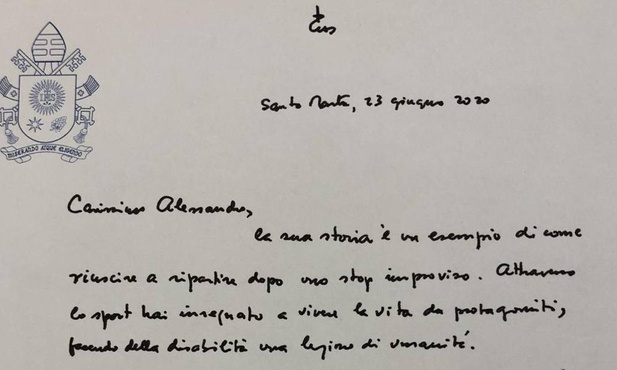 IHS
Santa Marta, 23 giugno 2020
MISERANDO ATQUE ELIGENDO
Carissimo Alessandro,
la sua storia è un esempio di come
riuscire a ripartire dopo uno stop improvviso. Attraverso
lo sport hai insegnato a vivere la vita da protagonisti,
facendo della disabilità una lezione di umanità.